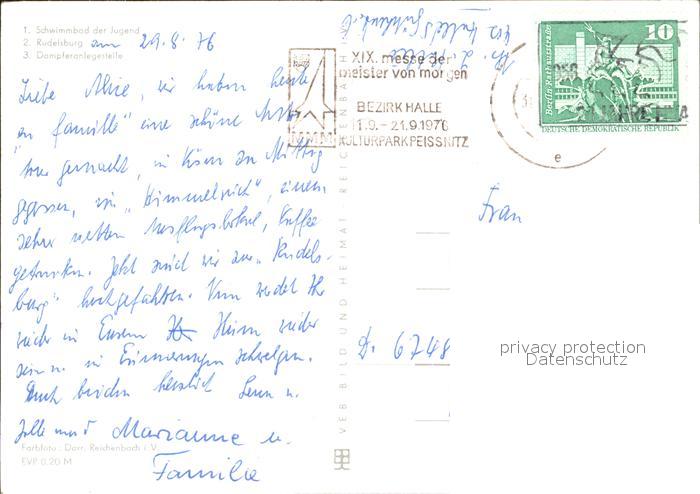 1. Schwimmbad der Jugend
2. Rudelsburg
3. Dampferanlegestelle
am 29.8.76
Liebe Alice, wir haben heute
"en famille" eine schöne
gemacht, in Kösen zu Mittag
gegessen, im "Himmelreich", einem
sehr netten Ausflugslokal, Kaffee
getrunken. Jetzt sind wir zur "Rudels-
burg" hochgefahren. Nun werdet Ihr
wieder in Eurem Heim wieder
sein u. in Erinnerungen schwelgen.
Euch beiden herzlich
Marianne u.
Familie
Farbfoto: Darr, Reichenbach i. V.
EVP 0.20 M
VEB BILD UND HEIMAT REICHENBACH I. V.
XIX. messe der
meister von morgen
BEZIRK HALLE
11.9. - 21.9.1976
KULTURPARK PEISSNITZ
MMM
e
10
Berlin, Rathausstraße
DEUTSCHE DEMOKRATISCHE REPUBLIK
Frau
D. 6748
privacy protection
Datenschutz